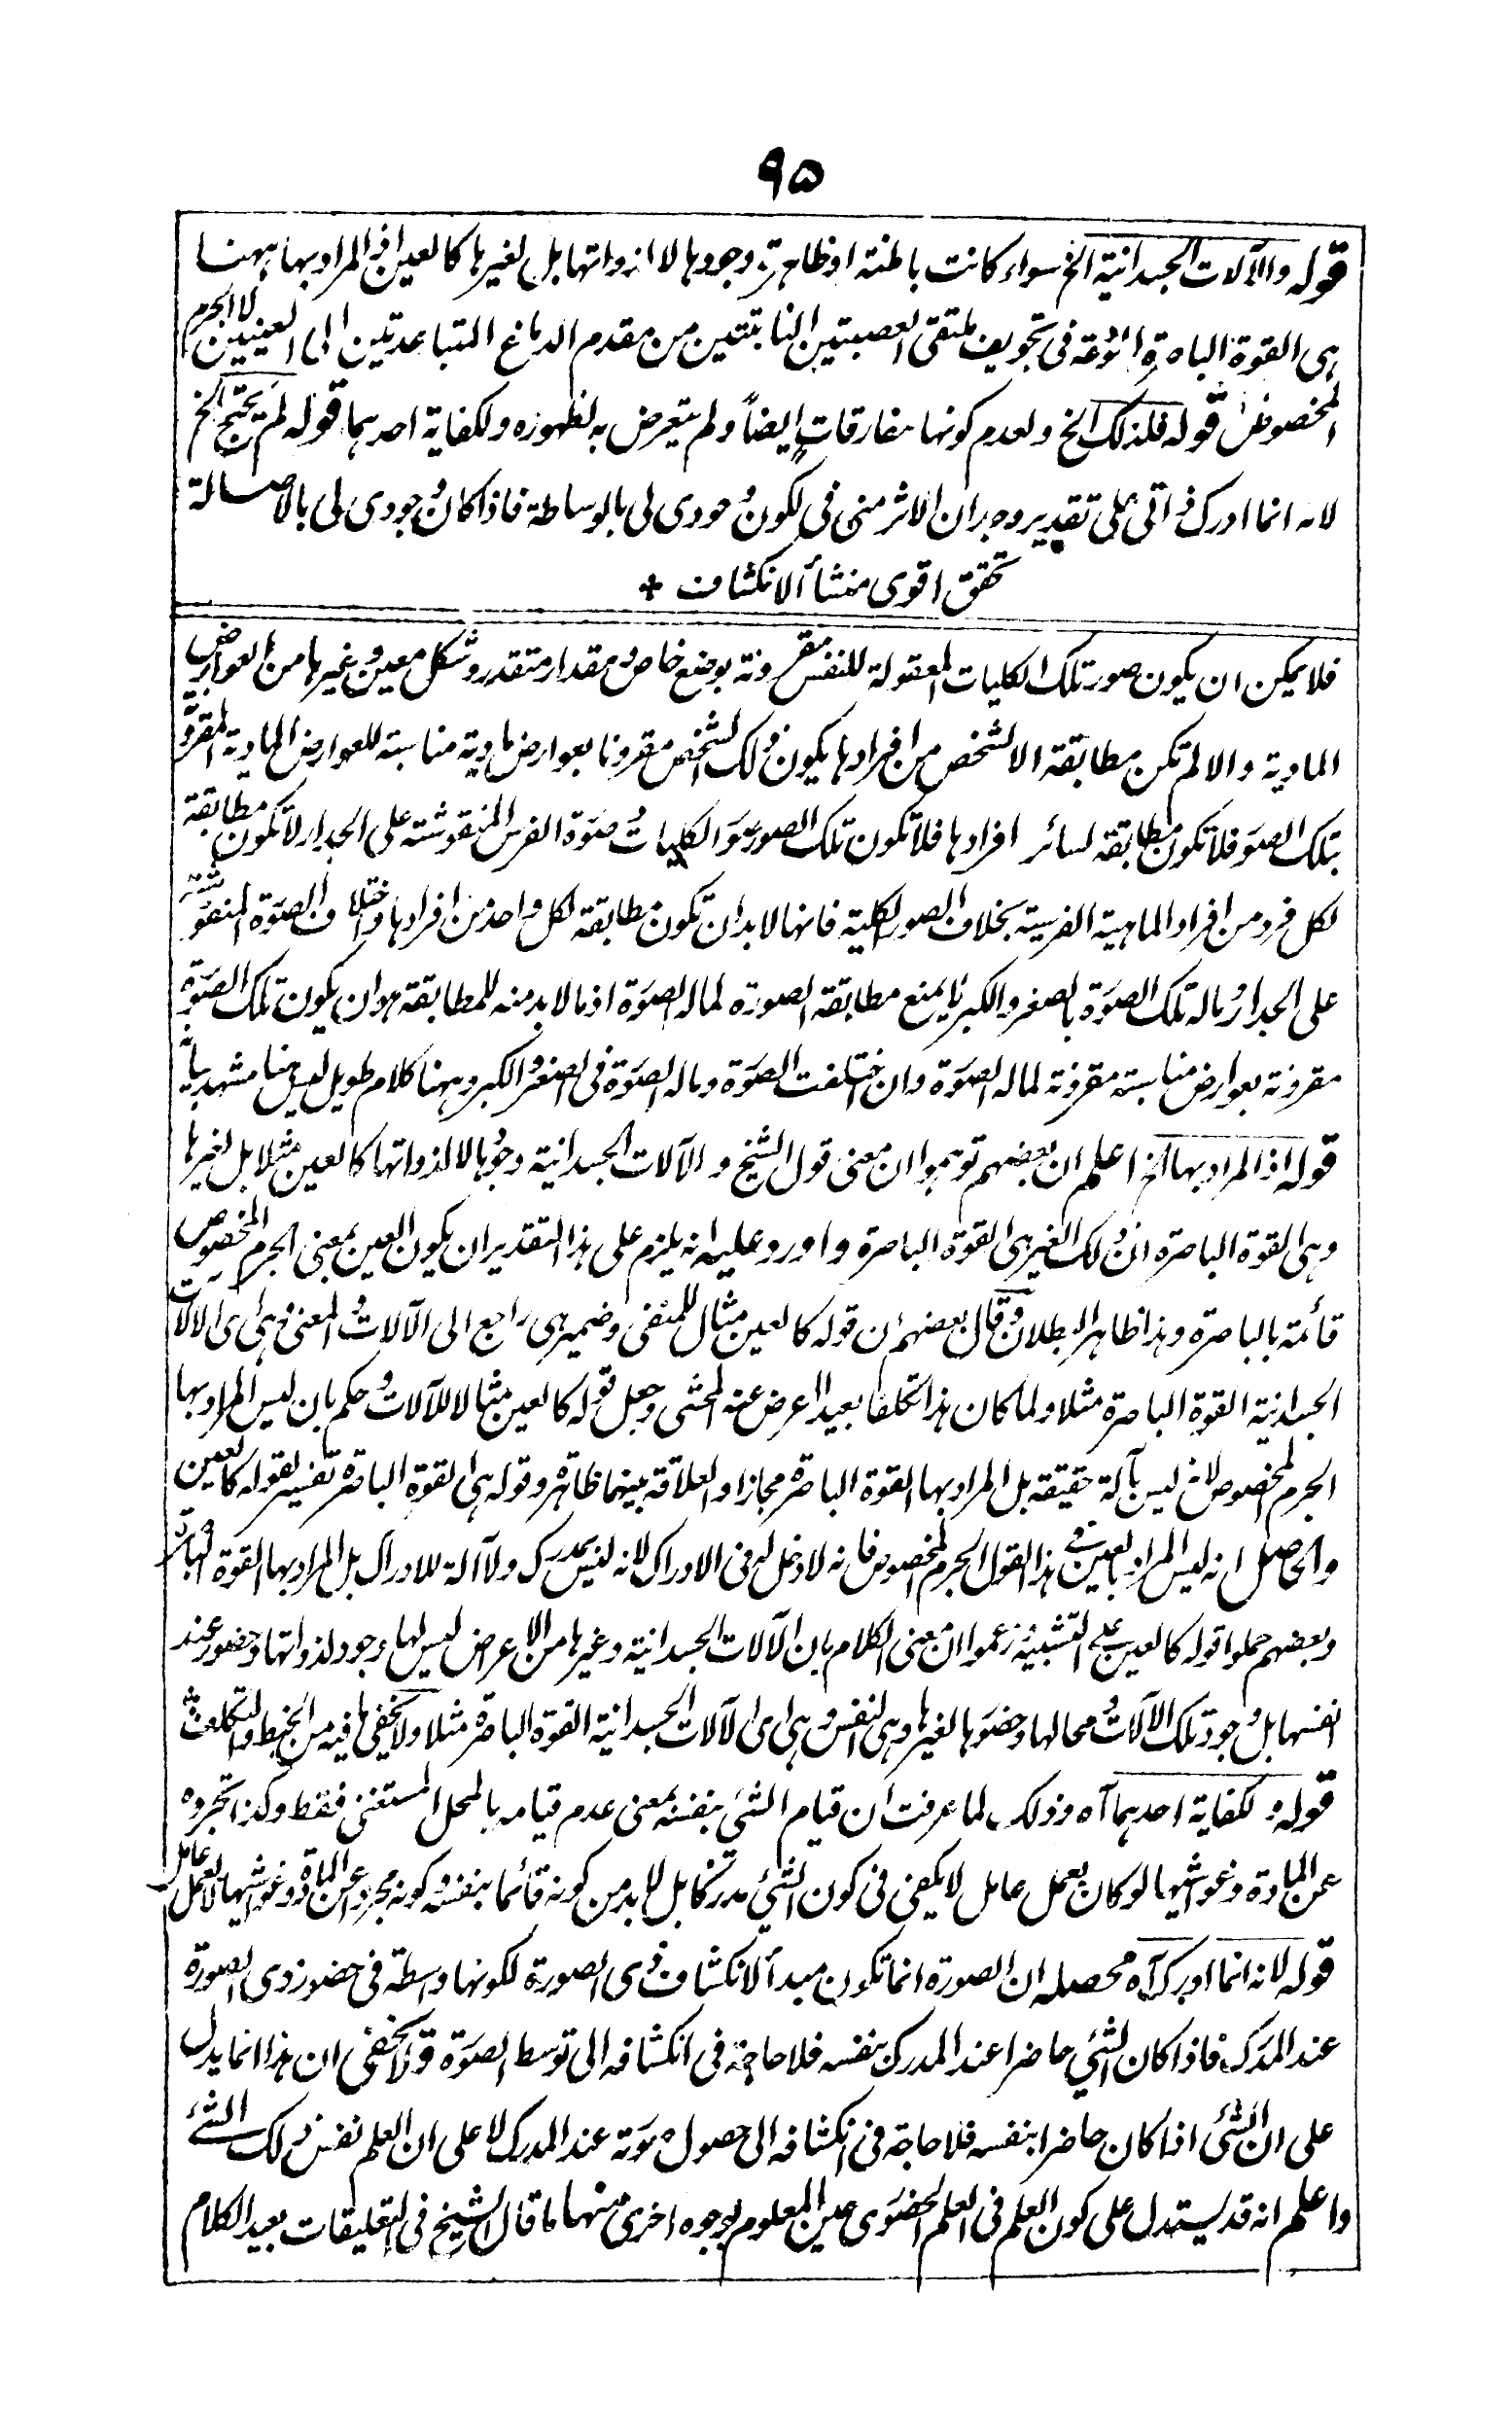 ٩٥
قوله والآلات الجسدانية الخ سواء كانت باطنة او ظاهرة وجودها لا لذواتها بل لغيرها كالعين اذ المراد بها ههنا
هى القوة الباصرة المودعة فى تجويف ملتقى العصبتين النابتتين من مقدم الدماغ المتباعدتين الى العينين لا الجرم
المخصوص قوله فلذلك الخ ولعدم كونها مفارقات ايضاً ولم يتعرض به لظهوره ولكفاية احدهما قوله لم يحتج الخ
لانه انما ادرك ذاتى على تقدير وجدان الاثر منى فى لكون وجودى لى بالوساطة فاذا كان وجودى لى بالاصالة
تحقق اقوى منشأ الانكشاف +
فلا يمكن ان يكون صور تلك الكليات المعقولة للنفس مقرونة بوضع خاص ومقدار متقدر وشكل معين وغيرها من العوارض
المادية والا لم تكن مطابقة الا لشخص من افرادها يكون ذلك الشخص مقرونا بعوارض مادية مناسبة للعوارض المادية المقرونة
بتلك الصور فلا تكون مطابقة لسائر افرادها فلا تكون تلك الصور صور الكليات وصورة الفرس المنقوشة على الجدار لا تكون مطابقة
لكل فرد من افراد الماهية الفرسية بخلاف الصور الكلية فانها لا بد ان تكون مطابقة لكل واحد من افرادها واختلاف الصورة المنقوشة
على الجدار وماله تلك الصورة بالصغر والكبر لا يمنع مطابقة الصورة لما له الصورة اذ ما لا بد منه للمطابقة هو ان يكون تلك الصورة
مقرونة بعوارض مناسبة مقرونة لما له الصورة وان اختلفت الصورة وماله الصورة فى الصغر والكبر وههنا كلام طويل ليس هنا مشهد بيانه
قوله اذ المراد بها الخ اعلم ان بعضهم توهموا ان معنى قول الشيخ والآلات الجسدانية وجودها لا لذواتها كالعين مثلا بل لغيرها
وهى القوة الباصرة ان ذلك الغير هى القوة الباصرة واورد عليه انه يلزم على هذا التقدير ان يكون العين بمعنى الجرم المخصوص
قائمة بالباصرة وهذا ظاهر البطلان وقال بعضهم ان قوله كالعين مثال للمنفى وضمير هى راجع الى الآلات والمعنى وهى اى الآلات
الجسدانية القوة الباصرة مثلا ولما كان هذا تكلفا بعيدا اعرض عنه المحشى وجعل قوله كالعين مثالا للآلات وحكم بان ليس المراد بها
الجرم المخصوص لانه ليس بآلة حقيقة بل المراد بها القوة الباصرة مجازا والعلاقة بينهما ظاهرة وقوله هى القوة الباصرة تفسير لقوله كالعين
والحاصل انه ليس المراد بالعين فى هذا القول الجرم المخصوص فانه لا دخل له فى الادراك لانه ليس بمدرك ولا آلة للادراك بل المراد بها القوة الباصرة
وبعضهم حملوا قوله كالعين على التشبيه وزعموا ان معنى الكلام بان الآلات الجسدانية وغيرها من الاعراض ليس لها وجود لذواتها وحضور عند
انفسها بل وجود تلك الآلات لمحالها وحضورها لغيرها وهى النفس وهى اى الآلات الجسدانية القوة الباصرة مثلا ولا يخفى ما فيه من الخبط والتكلف
قوله ولكفاية احدهما آه وذلك لما عرفت ان قيام الشئ بنفسه بمعنى عدم قيامه بالمحل المستغنى فقط وكذا تجرده
عن المادة وغواشيها لو كان بعمل عامل لا يكفى فى كون الشئ مدركا بل لا بد من كونه قائما بنفسه وكونه مجردا عن المادة وغواشيها لا بعمل عامل
قوله لانه انما ادرك آه محصله ان الصورة انما تكون مبدأ لانكشاف ذى الصورة لكونها واسطة فى حضور ذى الصورة
عند المدرك فاذا كان الشئ حاضرا عند المدرك بنفسه فلا حاجة فى انكشافه الى توسط الصورة ولا يخفى ان هذا انما يدل
على ان الشئ اذا كان حاضرا بنفسه فلا حاجة فى انكشافه الى حصول صورته عند المدرك لا على ان العلم نفس ذلك الشئ
واعلم انه قد يستدل على كون العلم فى العلم الحضورى عين المعلوم بوجوه اخرى منها ما قال الشيخ فى التعليقات بعيد الكلام